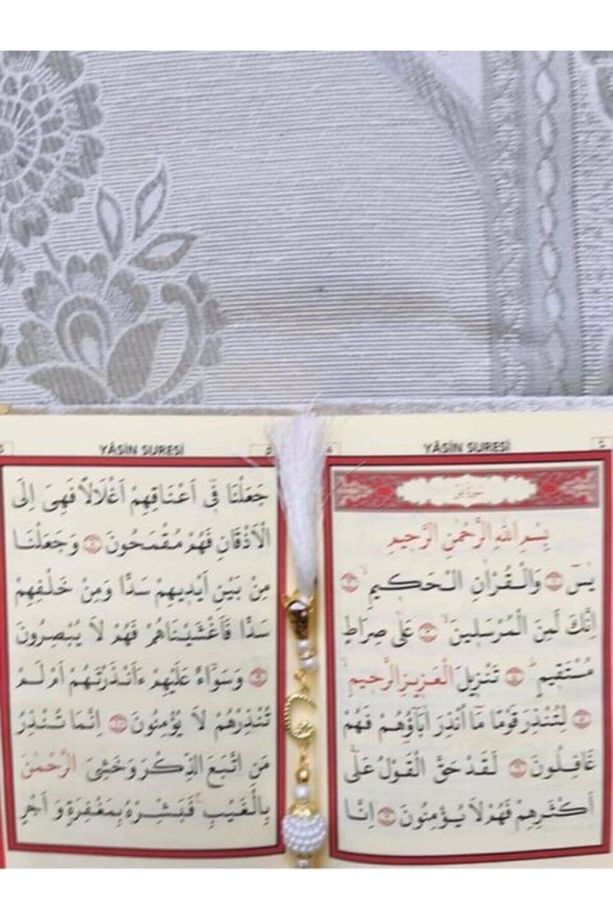 YÂSİN SURESİ
سورة يس
بِسْمِ اللهِ الرَّحْمٰنِ الرَّحِيمِ
يٰسٓ ۝ وَالْقُرْاٰنِ الْحَكٖيمِۙ ۝
اِنَّكَ لَمِنَ الْمُرْسَلٖينَۙ ۝ عَلٰى صِرَاطٍ
مُسْتَقٖيمٍؕ ۝ تَنْزٖيلَ الْعَزٖيزِ الرَّحٖيمِۙ
۝ لِتُنْذِرَ قَوْمًا مَٓا اُنْذِرَ اٰبَٓاؤُ۬هُمْ فَهُمْ
غَافِلُونَ ۝ لَقَدْ حَقَّ الْقَوْلُ عَلٰٓى
اَكْثَرِهِمْ فَهُمْ لَا يُؤْمِنُونَ ۝ اِنَّا
YÂSİN SURESİ
جَعَلْنَا فٖٓى اَعْنَاقِهِمْ اَغْلَالًا فَهِىَ اِلَى
الْاَذْقَانِ فَهُمْ مُقْمَحُونَ ۝ وَجَعَلْنَا
مِنْ بَيْنِ اَيْدٖيهِمْ سَدًّا وَمِنْ خَلْفِهِمْ
سَدًّا فَاَغْشَيْنَاهُمْ فَهُمْ لَا يُبْصِرُونَ
۝ وَسَوَٓاءٌ عَلَيْهِمْ ءَاَنْذَرْتَهُمْ اَمْ لَمْ
تُنْذِرْهُمْ لَا يُؤْمِنُونَ ۝ اِنَّمَا تُنْذِرُ
مَنِ اتَّبَعَ الذِّكْرَ وَخَشِىَ الرَّحْمٰنَ
بِالْغَيْبِۚ فَبَشِّرْهُ بِمَغْفِرَةٍ وَاَجْرٍ